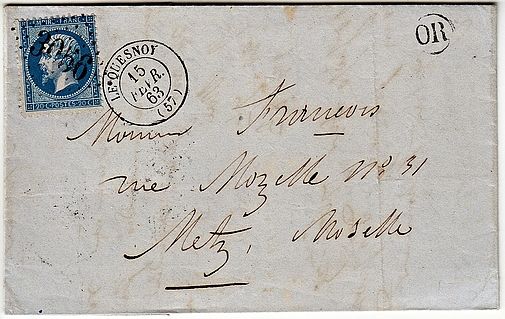 EMPIRE FRANC.
3056
20 C POSTES 20 C
LE QUESNOY
15
FEVR.
63
(57)
OR
Monsieur François
rue Mozelle No 31
Metz, Moselle